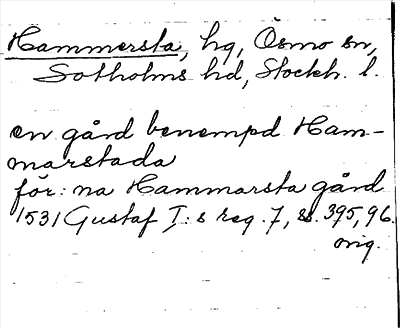 Hammersta, hg, Ösmo sn,
Sotholms hd, Stockh. l.
en gård benempd Ham-
marstada
för: na Hammarsta gård
1531 Gustaf I:s reg. 7, ss. 395, 96.
orig.